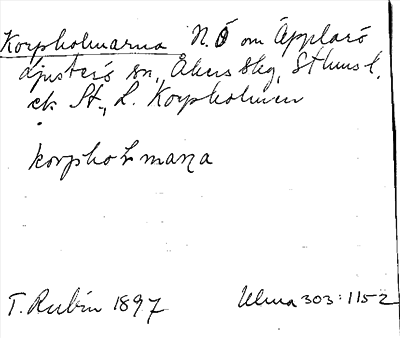 Korpholmarna N.Ö om Äpplarö
Ljusterö sn., Åkers Skg, Sthms l.
ek St., L. Korpholmen
korphoLmaṇa
T. Rubin 1897 Ulma 303:1152